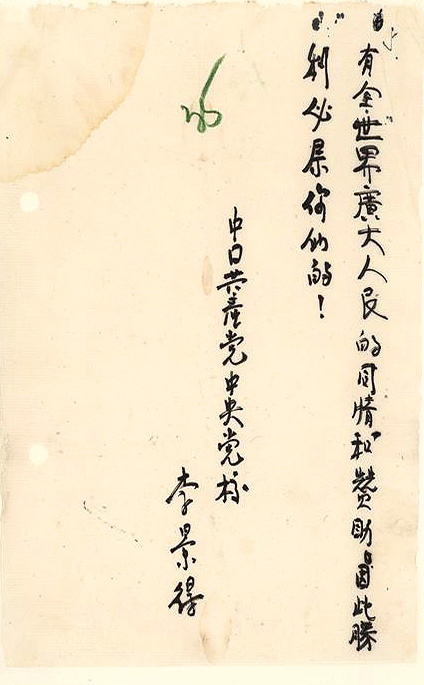 有全世界廣大人民的同情和贊助因此勝
利必屬你们的！
中囗共產党中央党校
李景